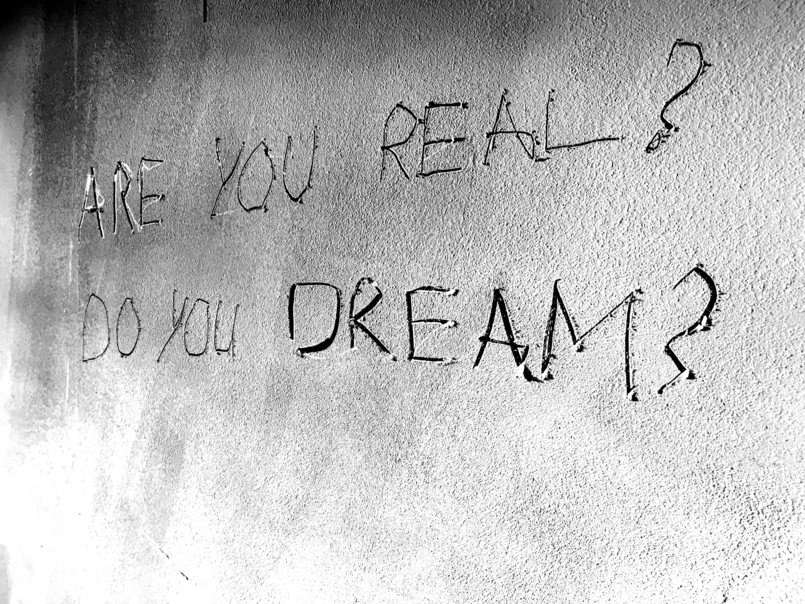 ARE YOU REAL?
DO YOU DREAM?